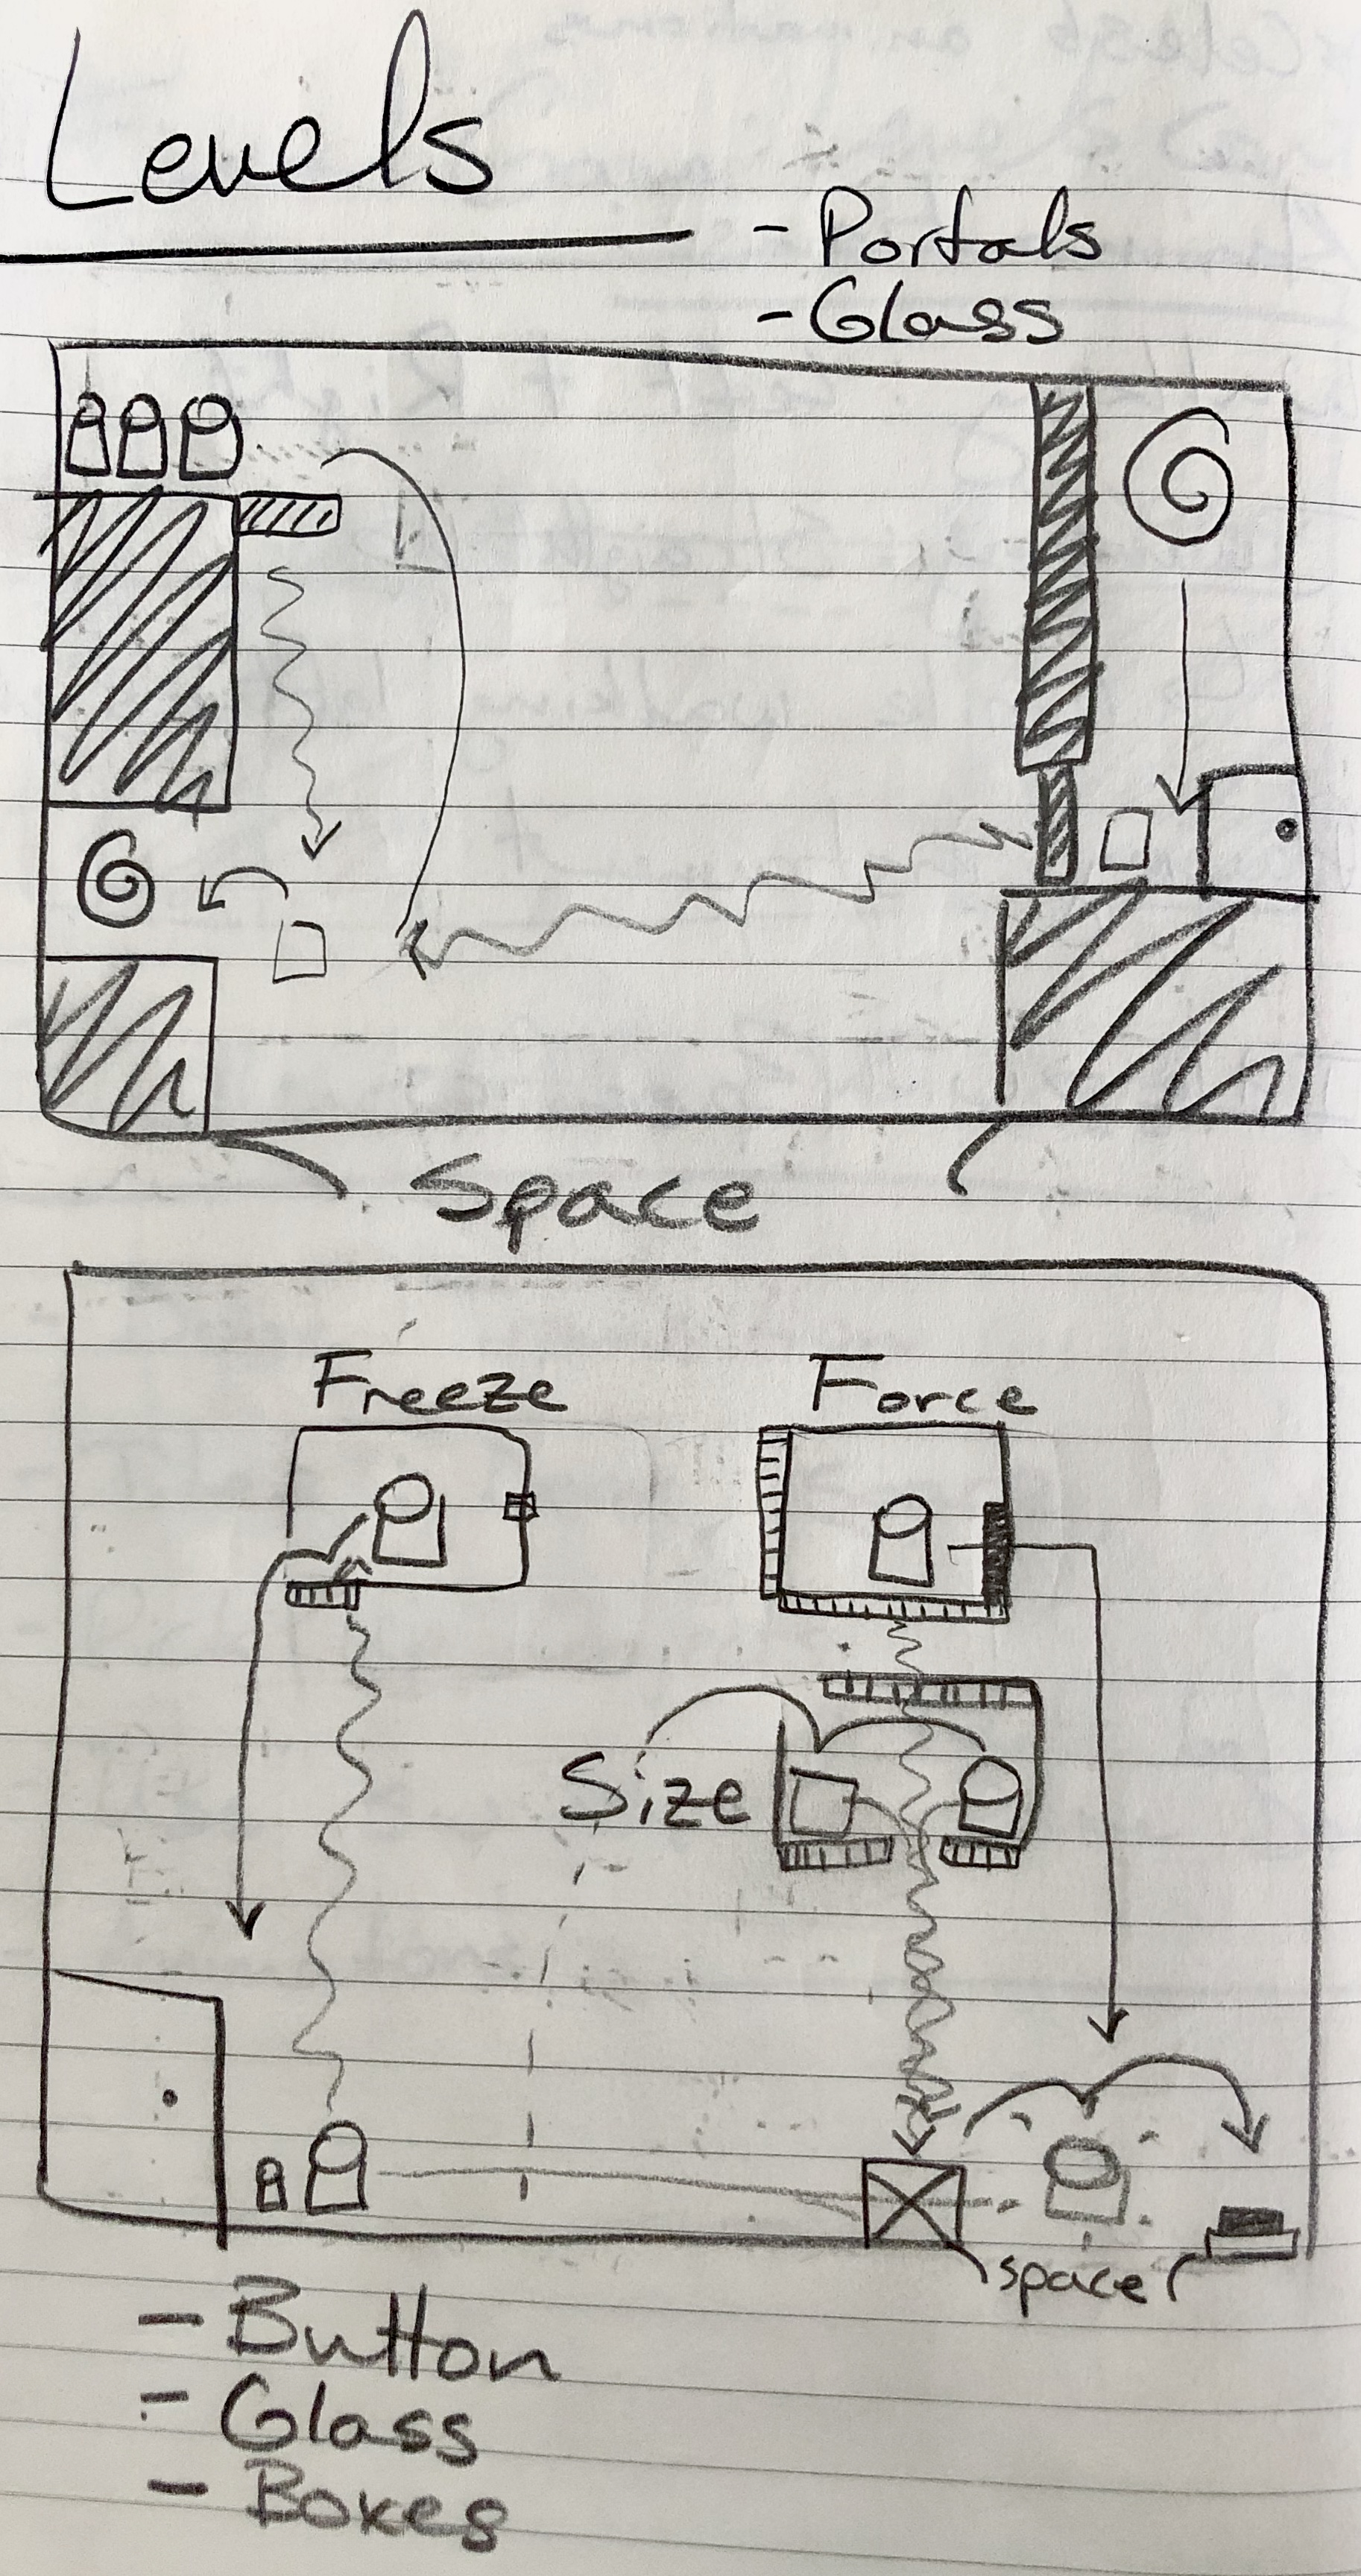 Levels
- Portals
- Glass
Space
Freeze
Force
Size
space
- Button
- Glass
- Boxes